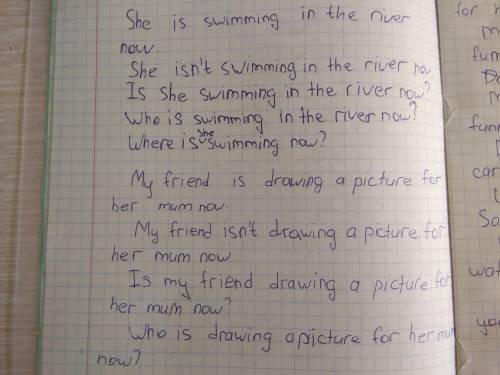 She is swimming in the river
now.
She isn't swimming in the river now
Is she swimming in the river now?
Who is swimming in the river now?
Where is she swimming now?
My friend is drawing a picture for
her mum now.
My friend isn't drawing a picture for
her mum now
Is my friend drawing a picture for
her mum now?
Who is drawing a picture for her mum
now?
for
fun
funn
car
Sa
wat
you